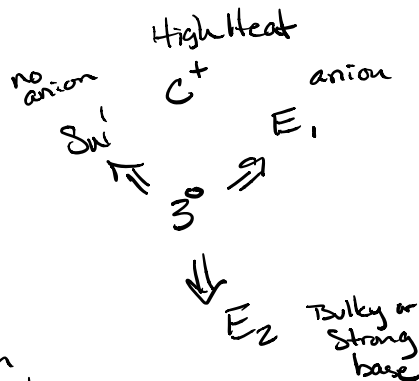 High Heat
no
anion
C+
anion
SN1
E1
3°
E2
Bulky or
strong
base